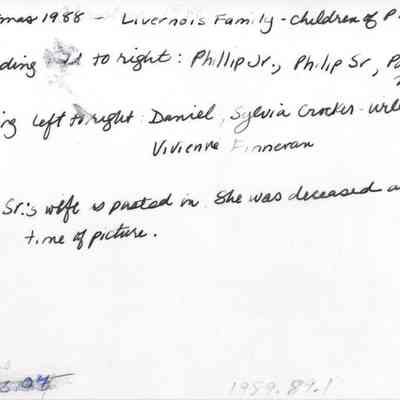 mas 1988 - Livernois Family - Children of P
ding to right: Phillip Jr., Philip Sr, P
ng left to right: Daniel, Sylvia Crocker-
Vivienne Finneran
Sr.'s wife is pasted in. She was deceased a
time of picture.
1989.89.1